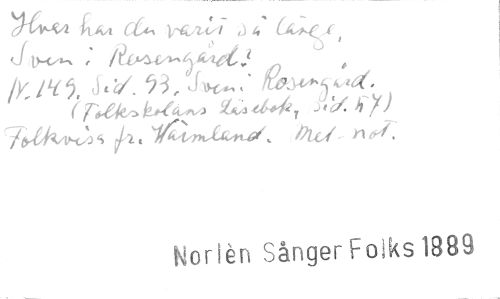 Hvar har du varit så länge,
Sven i Rosengård?
N. 149, Sid. 93, Sven i Rosengård.
(Folkskolans Läsebok, Sid. 47)
Folkvisa fr. Wärmland. Mel-not.
Norlèn Sånger Folks 1889